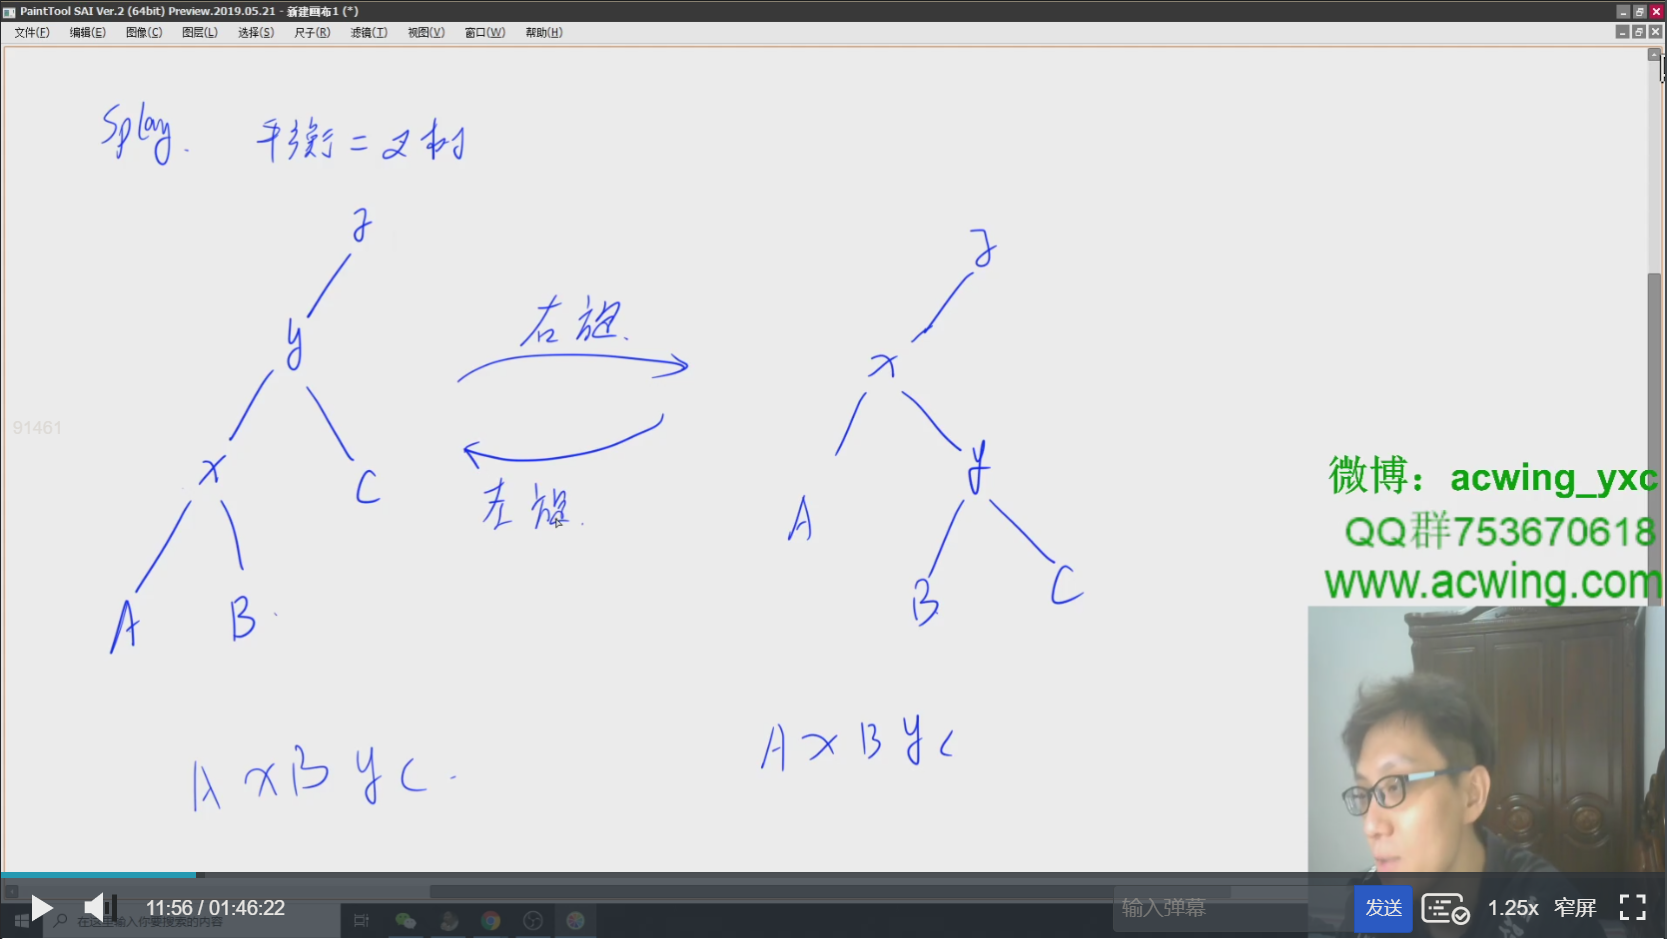 PaintTool SAI Ver.2 (64bit) Preview.2019.05.21 - 新建画布1 (*)
文件(F) 编辑(E) 图像(C) 图层(L) 选择(S) 尺子(R) 滤镜(T) 视图(V) 窗口(W) 帮助(H)
Splay. 平衡二叉树
z
z
右旋.
y
x
91461
x
C
y
左旋.
A
A
B.
B
C
A x B y C.
A x B y C
微博：acwing_yxc
QQ群753670618
www.acwing.com
11:56 / 01:46:22
输入弹幕
发送
1.25x
窄屏
在这里输入你要搜索的内容